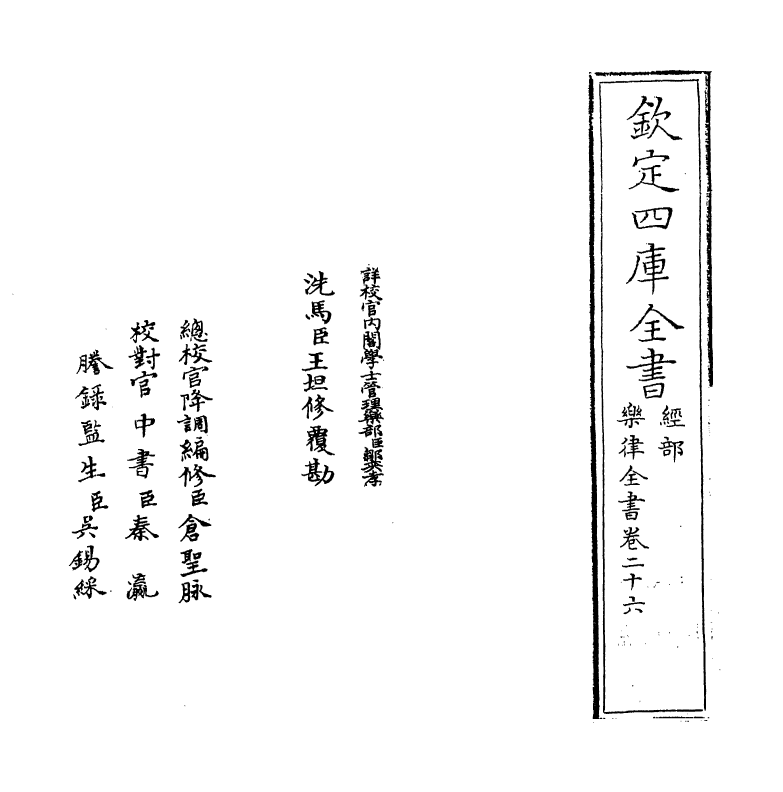 欽定四庫全書
經部
樂律全書卷二十六
詳校官內閣學士管理樂部臣鄒奕孝
洗馬臣王坦修覆勘
總校官降調編修臣倉聖脉
校對官中書臣秦瀛
謄錄監生臣吳錫綵